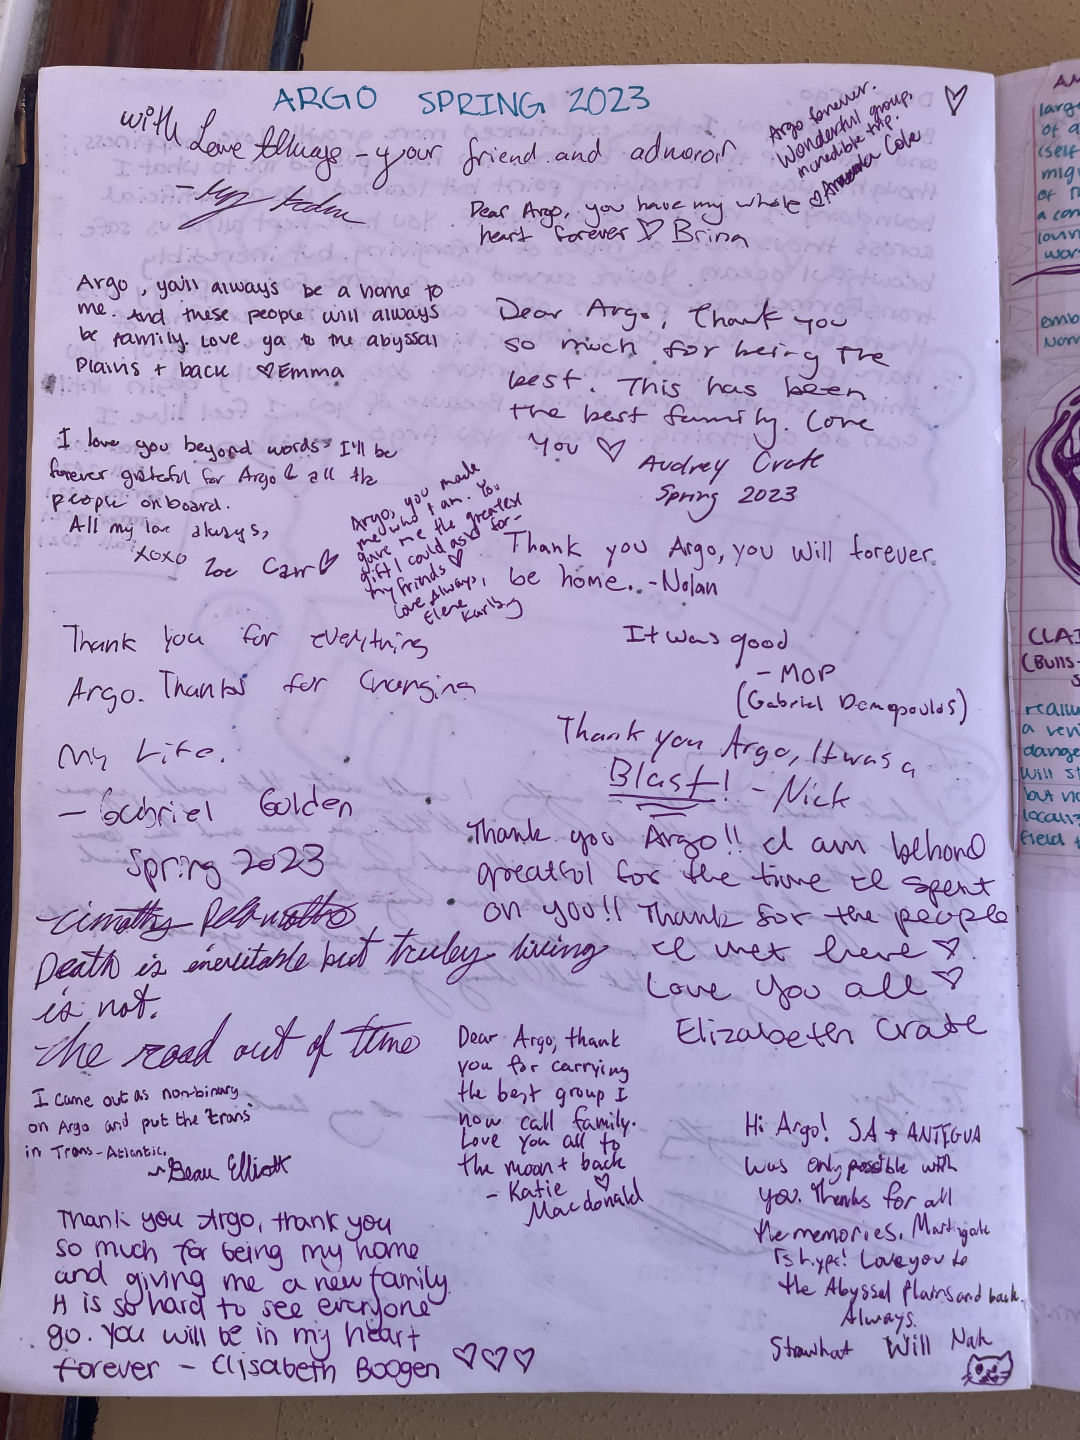 ARGO SPRING 2023
with Love Always - your friend and admoror
Argo forever.
Wonderful group,
incredible trip.
Cole
Dear Argo, you have my whole
heart forever ♡ Brina
Argo, you'll always be a home to
me. And these people will always
be family. Love ya to the abyssal
Plains + back ♡ Emma
Dear Argo, Thank you
so much for being the
best. This has been
the best family. Love
You ♡
Audrey Crate
Spring 2023
I love you beyond words. I'll be
forever grateful for Argo & all the
people onboard.
All my love always,
xoxo Zoe Carr ♡
Argo, you made
me who I am. You
gave me the greatest
gift I could ask for -
my friends ♡
Love Always,
Elene
Thank you Argo, you will forever
be home. - Nolan
Thank you for everything
Argo. Thanks for Changing
My Life.
- Gabriel Golden
Spring 2023
It was good
- MOP
(Gabriel Demopoulos)
Thank you Argo, It was a
Blast! - Nick
Thank you Argo!! I am behond
greatful for the time I spent
on you!! Thank for the people
I met here ♡
Love You all ♡
Elizabeth Crate
- Timothy
Death is inevitable but truley living
is not.
- The road out of time
I came out as non-binary
on Argo and put the "trans"
in Trans-Atlantic.
~ Beau Elliott
Dear Argo, thank
you for carrying
the best group I
now call family.
Love you all to
the moon + back
- Katie ♡
Macdonald
Hi Argo! SA → ANTEGUA
was only possible with
you. Thanks for all
the memories. Martingale
Is hype! Love you to
the Abyssel plains and back.
Always.
Strawhat Will Nah
Thank you Argo, thank you
so much for being my home
and giving me a new family
It is so hard to see everyone
go. You will be in my heart
forever - Elisabeth Boogen ♡♡♡
large
of a
(self
migr
of
a con
lovin
wor
emb
Nam
CLAI
(Bulls-
really
a ven
dange
will st
but no
locali
field